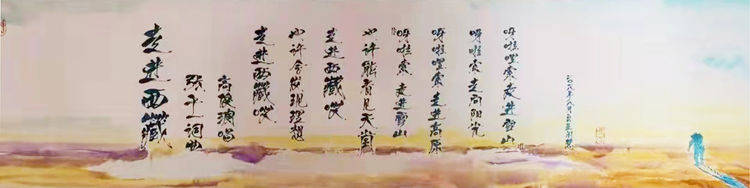 走进西藏
张千一词曲
演唱
走进西藏
也许会发现理想
走进西藏
也许能看见天堂
呀啦索 走进雪山
呀啦嘿索走进高原
呀啦索走向阳光
呀啦嘿索走进雪山